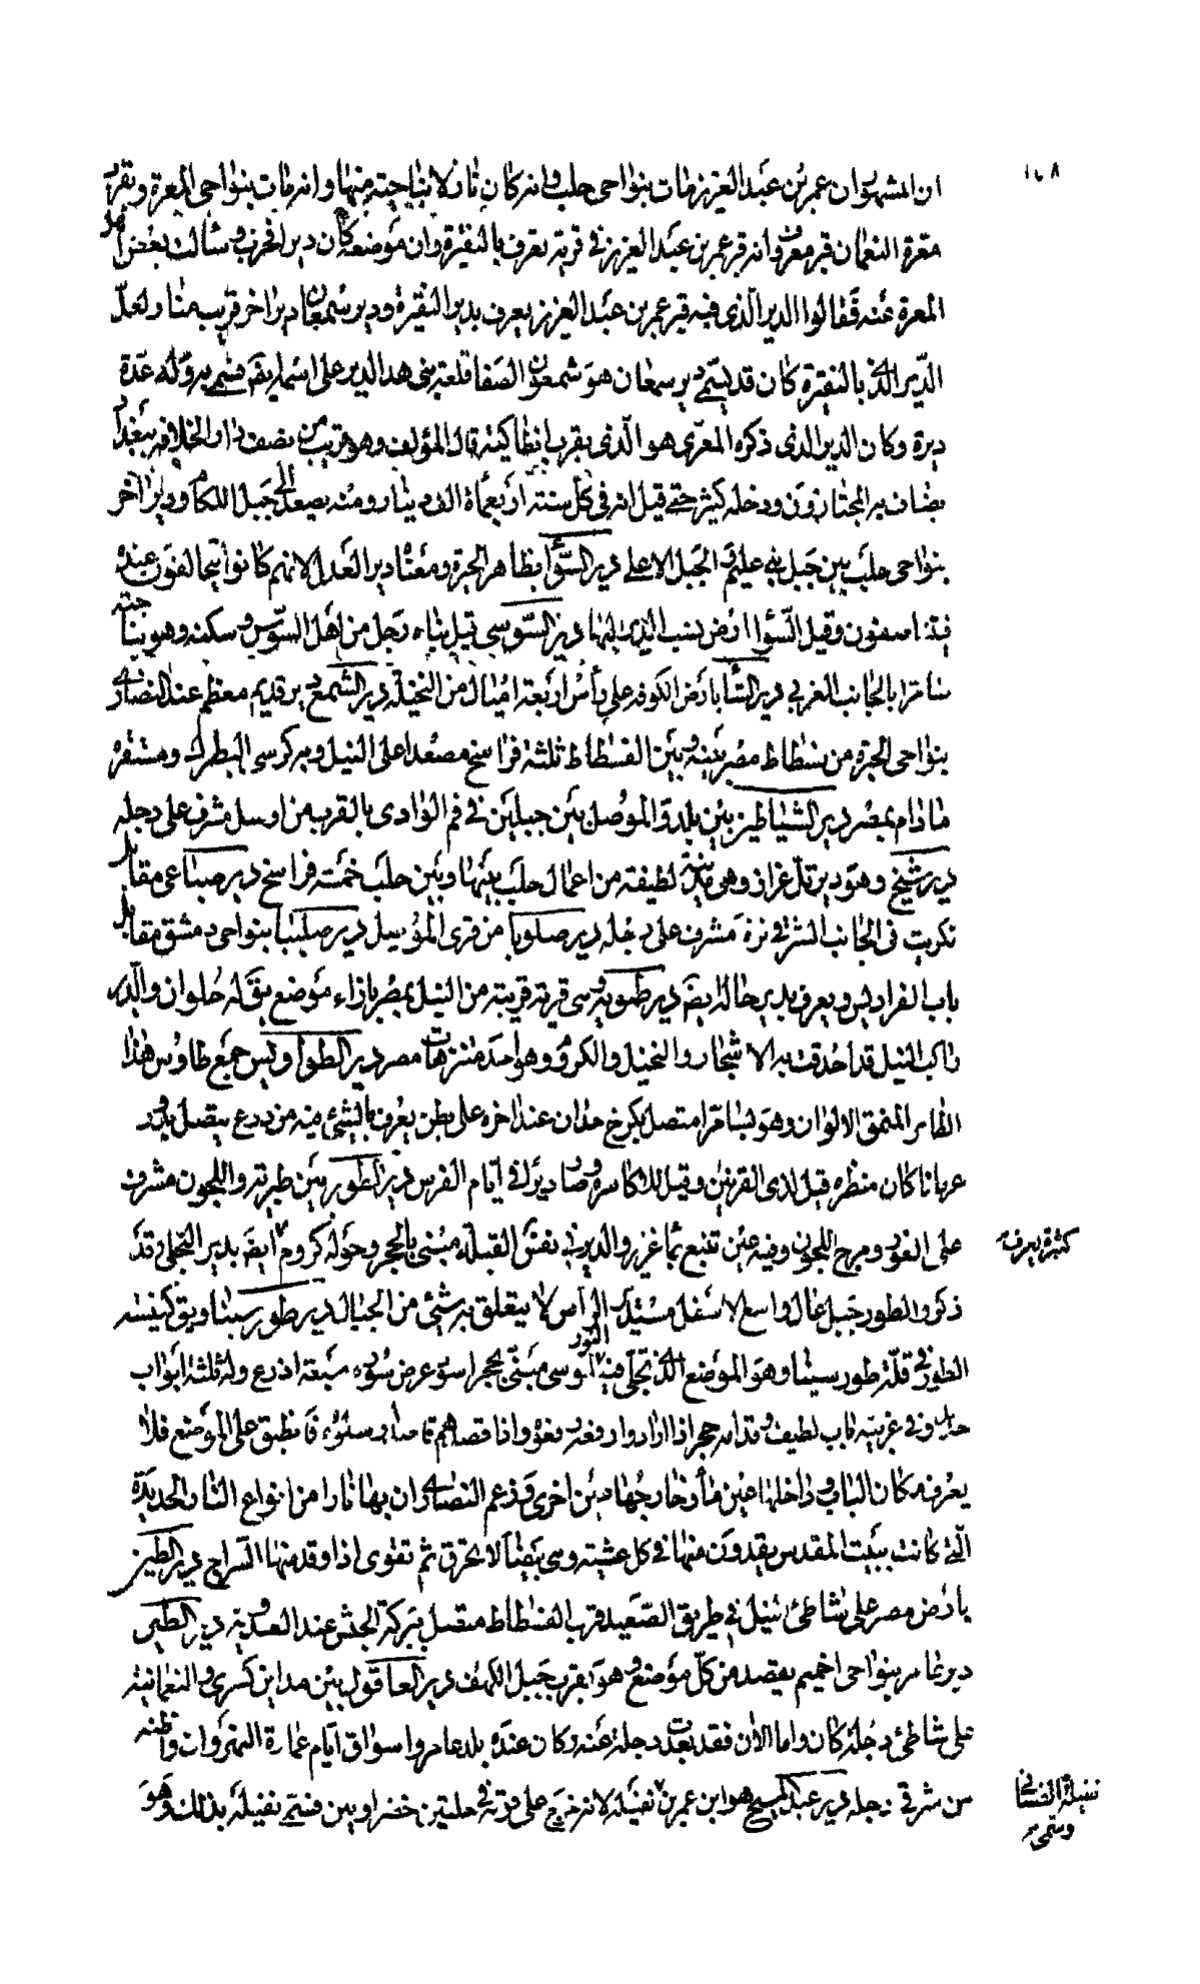 ١٦٨
ان المشهور ان عمر بن عبد العزيز مات بنواحى حلب وانه كان نازلا بناحية منها وانه مات بنواحى المعرة وبقرب
معرة النعمان قبر معروف انه قبر عمر بن عبد العزيز فى قرية يعرف بالنقيرة وان موضعه كان ديرا فخرب وسالت بعض اهل
المعرة عنه فقالوا الدير الذى فيه قبر عمر بن عبد العزيز يعرف بدير النقيرة ودير سمعان دير اخر قريب منا ولعل
الدير الذى بالنقيرة كان قد يسمى دير سمعان هو شمعون الصفا قلعة بنى هذا الدير على اسمه وله عدة
ديرة وكان الدير الذى ذكره المعرى هو الذى بقرب انطاكية قال المؤلف وهو قريب من نصف دار الخلافة ببغداد
يضاف به المجتازون ودخله كثير حتى قيل انه فى كل سنة اربعمأة الف دينار ومنه يصعد الى جبل اللكام ودير اخر
بنواحى حلب بين جبل بنى عليم والجبل الاعلى دير السوا بظاهر الحيرة ومعناه دير العدل لانهم كانوا يتحالفون عنده
فيتناصفون وقيل السؤا ارض نسب الدير اليها دير السوسى قيل بناه رجل من اهل السوس وسكنه وهو بناحية
سامرا بالجانب الغربى دير الشا بارض الكوفه على رأس اربعة اميال من النخيلة دير الشمع دير قديم معظم عند النصارى
بنواحى الجيزة من فسطاط مصر بينه وبين الفسطاط ثلثة فراسخ مصعدا على النيل وبه كرسى البطرك ومستقره
ما دام بمصر دير الشياطين بين بلد والموصل بين جبلين فى فم الوادى بالقرب من اوسل مشرف على دجلة
دير شيخ وهو دير تل عزاز وهى مدينة لطيفة من اعمال حلب بينها وبين حلب خمسة فراسخ دير صباعى مقابل
تكريت فى الجانب الشرقى نزه مشرف على دجلة دير صلوبا من قرى الموصل دير صليبا بنواحى دمشق مقابل
باب الفراديس ويعرف بدير خالد ايضا دير طمويه وهى قرية قريبة من النيل بمصر بازاء موضع يقال له حلوان والدير
راكب النيل قد احدقت به الاشجار والنخيل والكروم وهو احد متنزهات مصر دير الطواويس جمع طاوس هذا
الطاير المنمق الالوان وهو بسامرا متصل بكرخ جدان عند اخره على بطن يعرف بالبنى فيه مزدرع يتصل بالدور
عربانا كان منظره قبل لذى القرنين وقيل للاكاسره وصار ديرا فى ايام الفرس دير الطور بين طبرية واللجون مشرف
على الغور ومرج اللجون وفيه عين تنبع بماء غزير والدير فى نفس القبلة مبنى بالحجر وحوله كروم كثيرة يعرف ايضا بدير التجلى وقد
ذكروا الطور جبل عال واسع الاسفل مستدير الراس لا يتعلق به شئ من الجبال دير طور سينا ويق كنيسة
الطور فى قلة طور سينا وهو الموضع الذى تجلى فيه النور لموسى مبنى بحجر اسود عرض سوره سبعة اذرع وله ثلثة ابواب
حديد وفى غربيه باب لطيف وقدامه حجر اذا ارادوا رفعه رفعوه واذا قصدهم قاصد ارسلوه فانطبق على الموضع فلا
يعرف مكان الباب وداخلها عين ماء وخارجها عين اخرى وزعم النصارى ان بها نارا من انواع النار الجديدة
التى كانت ببيت المقدس يقدون منها فى كل عشية وهى بيضا لا تحرق ثم تقوى اذا وقد منها السراج دير الطين
بارض مصر على شاطئ النيل فى طريق الصعيد قرب الفسطاط متصل ببركة الحبش عند العدوية دير الطير
دير عامر بنواحى اخميم يقصد من كل موضع وهو بقرب جبل الكهف دير العاقول بين مداين كسرى والنعمانية
على شاطئ دجلة كان واما الان فقد بعدت دجلة عنه وكان عنده بلد عامر واسواق ايام عمارة النهروان واظنه
من شرقى دجلة دير عبد المسيح هو ابن عمرو بن نفيلة لانه خرج على قومه فى حلتين خضراوين فسمى نفيلة بذلك وهو
كثيرة يعرف
نفيلة الغسانى
وسمى